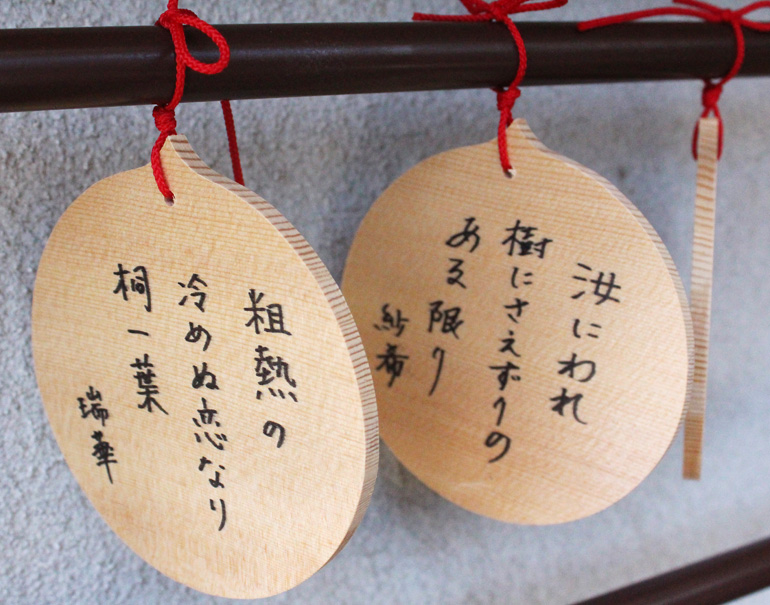 粗熱の
冷めぬ恋なり
桐一葉
瑞華
汝にわれ
樹にさえずりの
ある限り
紗希